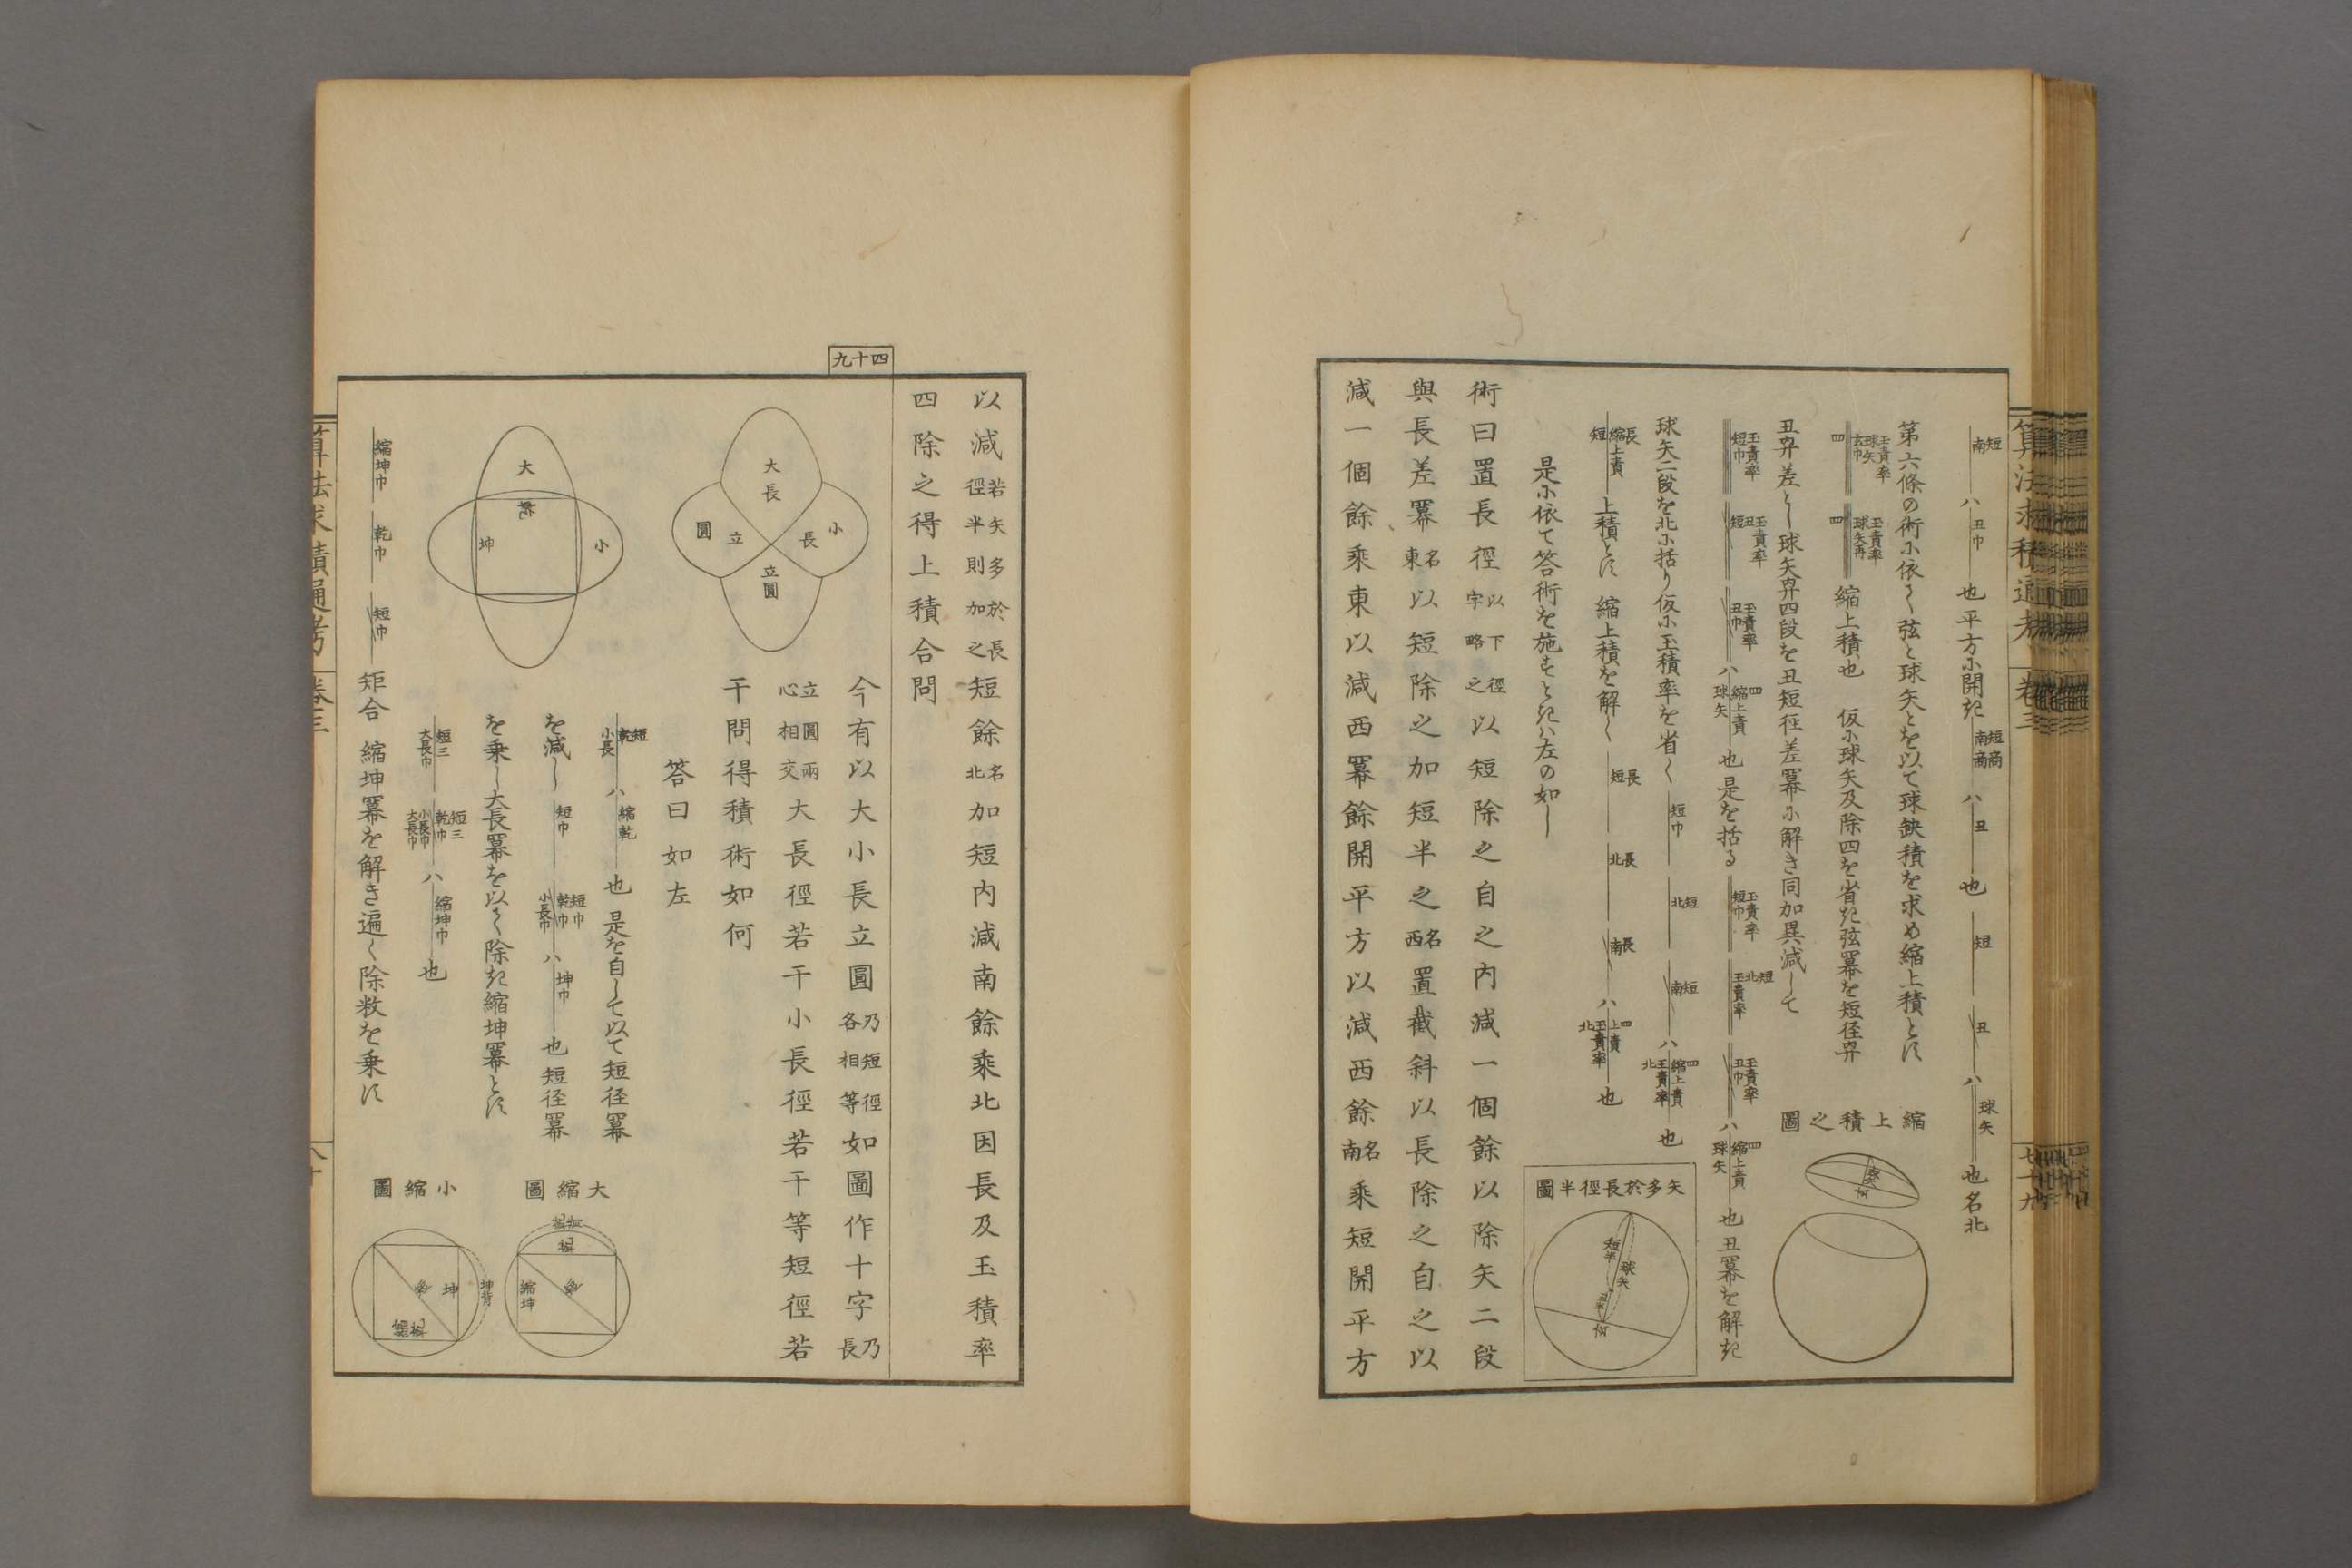 算法求積通考 卷三 七十九
南短 ハ 丑巾 也平方ニ開キ 南商短商 ハ 丑 也 短 丑 ハ 球矢 也名北
第六條の術ニ依て弦と球矢とを以て球缺積を求め縮上積とす
四 玄巾球矢玉責率 四 球矢再玉責率 縮上積也 仮ニ球矢及除四を省き弦冪を短径冪
丑冪差とし球矢冪四段を丑短径差冪ニ解き同加異減して
短巾玉責率 短丑玉責率 丑巾玉責率 ハ 球矢縮上責四 也是を括る 短巾玉責率 玉責率北短 丑巾玉責率 ハ 球矢縮上責四 也丑冪を解き
球矢二段を北ニ括り仮ニ玉積率を省く 短巾 北短 南短 ハ 北玉責率縮上責四 也
短縮上責長 上積とす 縮上積を解く 短長 北長 南長 ハ 北玉責率上責四 也
是ニ依て答術を施すときハ左の如し
縮上積之圖
矢多於長徑半圖
短半
球矢
術曰置長徑以下徑字略之以短除之自之內減一個餘以除矢二段
與長差冪名東以短除之加短半之名西置截斜以長除之自之以
減一個餘乘東以減西冪餘開平方以減西餘名南乘短開平方
以減若矢多於長徑半則加之短餘名北加短內減南餘乘北因長及玉積率
四除之得上積合問
四十九
大長
立圓
小長
立圓
今有以大小長立圓乃短徑各相等如圖作十字乃長
立圓兩心相交大長徑若干小長徑若干等短徑若
干問得積術如何
答曰如左
大
小
坤
小長乾短 ハ 縮乾 也是を自して以て短径冪
を減し 短巾 小長巾乾巾短巾 ハ 坤巾 也短径冪
を乗し大長冪を以て除き縮坤冪とす
大長巾短三 大長巾小長巾乾巾短三 ハ 縮坤巾 也
縮坤巾 乾巾 短巾 矩合 縮坤冪を解き遍く除数を乗す
大縮圖
縮坤
小縮圖
坤
坤背
算法求積通考 卷三 八十